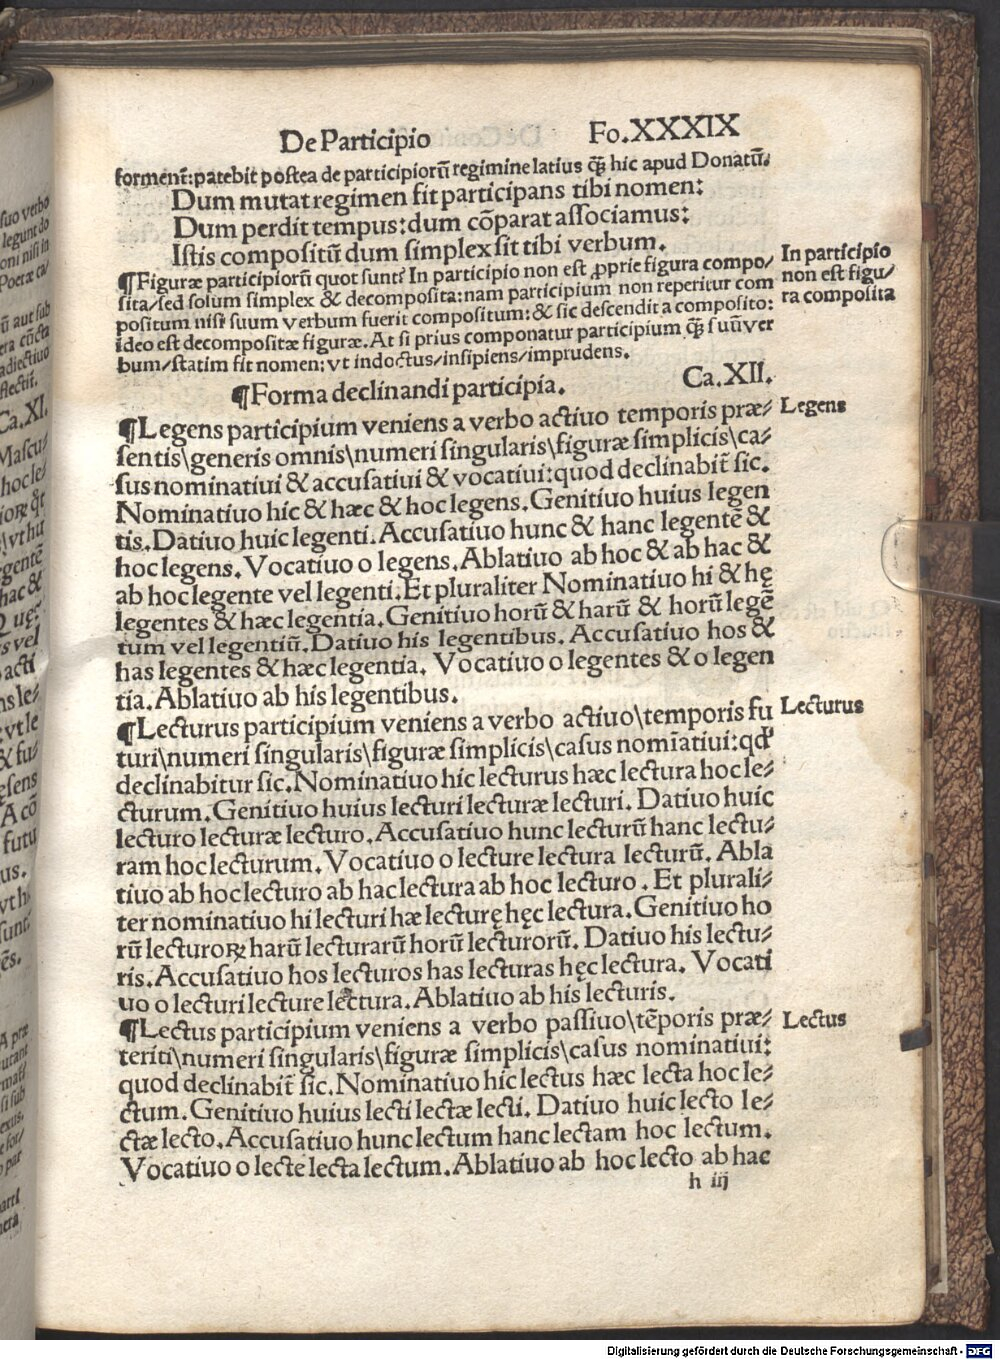 De Participio Fo.XXXIX
forment̃:patebit postea de participiorũ regimine latius q̃ȝ hic apud Donatũ.
Dum mutat regimen fit participans tibi nomen:
Dum perdit tempus:dum cõparat associamus:
Istis compositũ dum simplex sit tibi verbum.
¶Figuræ participiorũ quot sunt? In participio non est ꝓprie figura compo⸗
sita/sed solum simplex & decomposita:nam participium non reperitur com
positum nisi suum verbum fuerit compositum:& sic descendit a composito:
ideo est decompositæ figuræ.At si prius componatur participium q̃ȝ suũ ver
bum/statim fit nomen:vt indoctus/insipiens/imprudens.
In participio
non est figu⸗
ra composita
¶Forma declinandi participia. Ca.XII.
¶Legens participium veniens a verbo actiuo temporis præ⸗
sentis\generis omnis\numeri singularis\figuræ simplicis\ca⸗
sus nominatiui & accusatiui & vocatiui:quod declinabit̃ sic.
Nominatiuo hic & hæc & hoc legens.Genitiuo huius legen
tis.Datiuo huic legenti.Accusatiuo hunc & hanc legentẽ &
hoc legens.Vocatiuo o legens.Ablatiuo ab hoc & ab hac &
ab hoc legente vel legenti.Et pluraliter Nominatiuo hi & hę
legentes & hæc legentia.Genitiuo horũ & harũ & horũ legẽ
tum vel legentiũ.Datiuo his legentibus.Accusatiuo hos &
has legentes & hæc legentia. Vocatiuo o legentes & o legen
tia.Ablatiuo ab his legentibus.
Legens
¶Lecturus participium veniens a verbo actiuo\temporis fu
turi\numeri singularis\figuræ simplicis\casus nomĩatiui:qđ
declinabitur sic.Nominatiuo hic lecturus hæc lectura hoc le⸗
cturum.Genitiuo huius lecturi lecturæ lecturi. Datiuo huic
lecturo lecturæ lecturo.Accusatiuo hunc lecturũ hanc lectu⸗
ram hoc lecturum.Vocatiuo o lecture lectura lecturũ. Abla
tiuo ab hoc lecturo ab hac lectura ab hoc lecturo . Et plurali⸗
ter nominatiuo hi lecturi hæ lecturę hęc lectura.Genitiuo ho
rũ lecturoꝝ harũ lecturarũ horũ lecturorũ. Datiuo his lectu⸗
ris.Accusatiuo hos lecturos has lecturas hęc lectura. Vocati
uo o lecturi lecture lectura.Ablatiuo ab his lecturis.
Lecturus
¶Lectus participium veniens a verbo passiuo\tẽporis præ⸗
teriti\numeri singularis\figuræ simplicis\casus nominatiui:
quod declinabit̃ sic.Nominatiuo hic lectus hæc lecta hoc le⸗
ctum.Genitiuo huius lecti lectæ lecti. Datiuo huic lecto le⸗
ctæ lecto.Accusatiuo hunc lectum hanc lectam hoc lectum.
Vocatiuo o lecte lecta lectum.Ablatiuo ab hoc lecto ab hac
Lectus
h iij
Digitalisierung gefördert durch die Deutsche Forschungsgemeinschaft - DFG